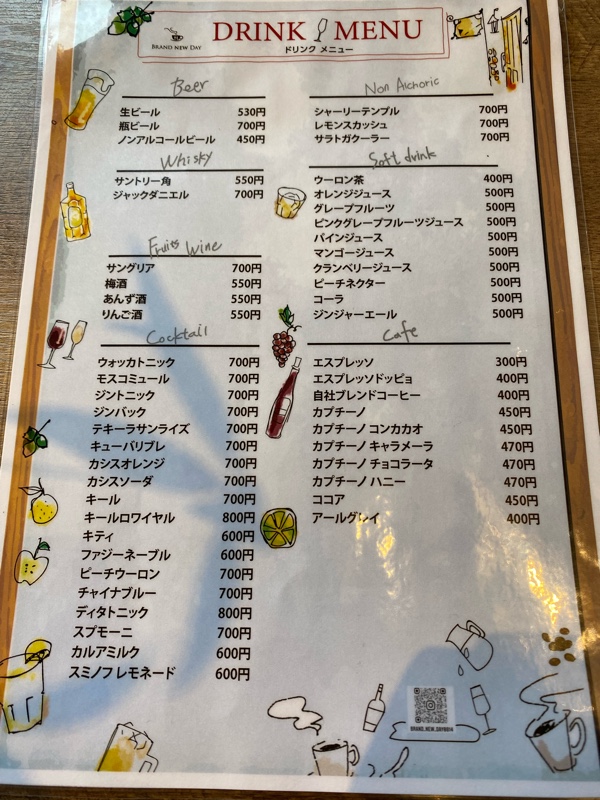 BRAND NEW DAY
DRINK MENU
ドリンク メニュー
Beer
生ビール 530円
瓶ビール 700円
ノンアルコールビール 450円
Whisky
サントリー角 550円
ジャックダニエル 700円
Fruits Wine
サングリア 700円
梅酒 550円
あんず酒 550円
りんご酒 550円
Cocktail
ウォッカトニック 700円
モスコミュール 700円
ジントニック 700円
ジンバック 700円
テキーラサンライズ 700円
キューバリブレ 700円
カシスオレンジ 700円
カシスソーダ 700円
キール 700円
キールロワイヤル 800円
キティ 600円
ファジーネーブル 600円
ピーチウーロン 700円
チャイナブルー 700円
ディタトニック 800円
スプモーニ 700円
カルアミルク 600円
スミノフ レモネード 600円
Non Alchoric
シャーリーテンプル 700円
レモンスカッシュ 700円
サラトガクーラー 700円
Soft drink
ウーロン茶 400円
オレンジジュース 500円
グレープフルーツ 500円
ピンクグレープフルーツジュース 500円
パインジュース 500円
マンゴージュース 500円
クランベリージュース 500円
ピーチネクター 500円
コーラ 500円
ジンジャーエール 500円
Cafe
エスプレッソ 300円
エスプレッソドッピョ 400円
自社ブレンドコーヒー 400円
カプチーノ 450円
カプチーノ コンカカオ 450円
カプチーノ キャラメーラ 470円
カプチーノ チョコラータ 470円
カプチーノ ハニー 470円
ココア 450円
アールグレイ 400円